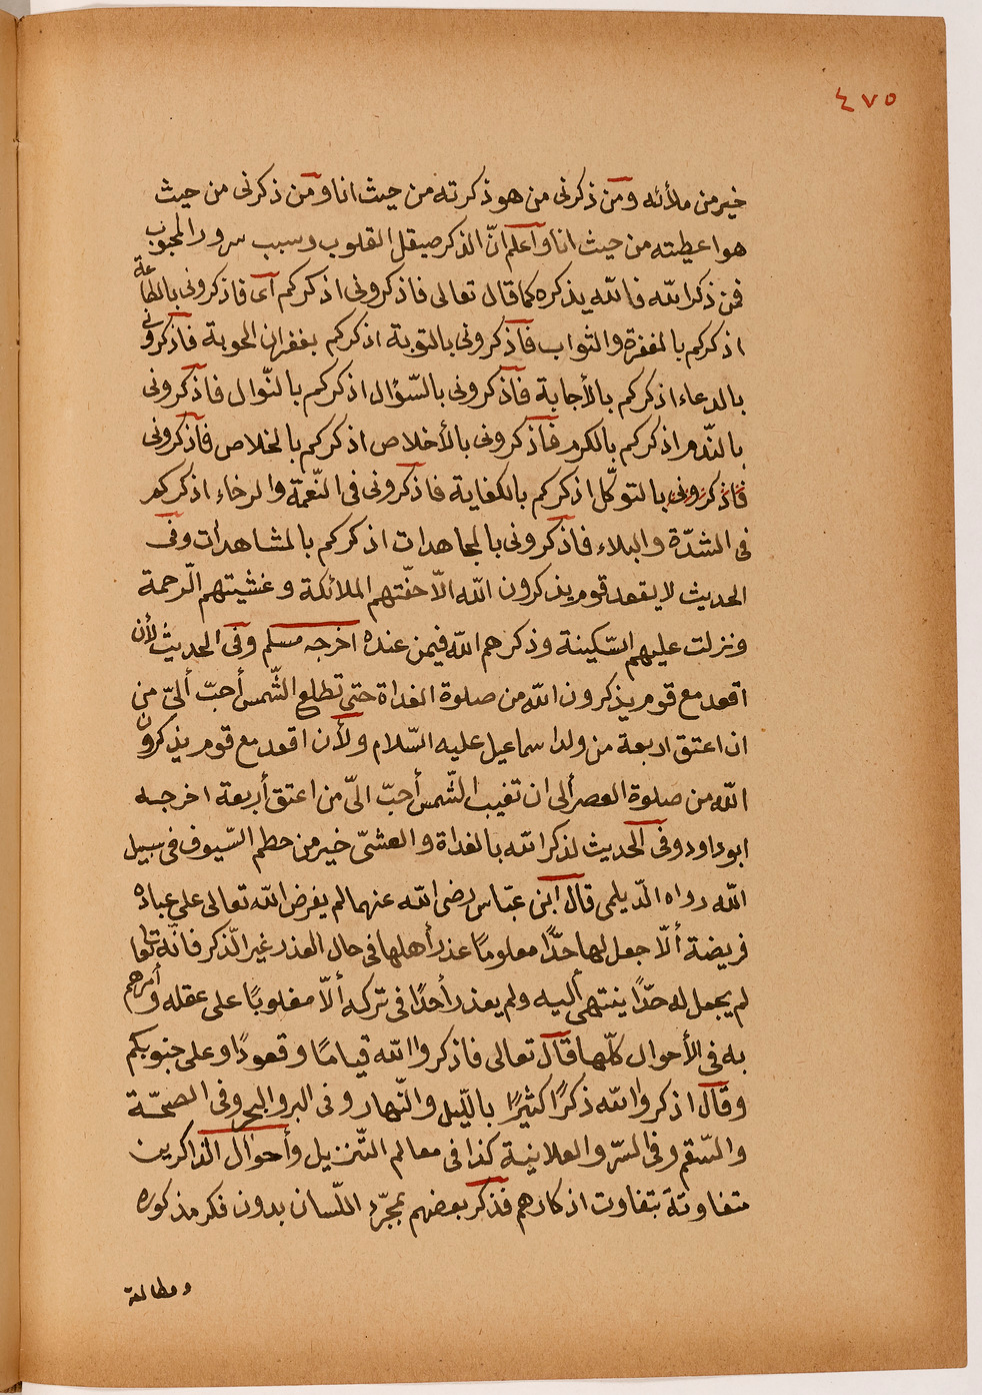 ٤٧٥
خير من ملأئه ومن ذكرنى من هو ذكرته من حيث انا ومن ذكرنى من حيث
هو اعطيته من حيث انا واعلم انّ الذكر صيقل القلوب وسبب سرور المحبوب
فمن ذكر الله فالله يذكره كما قال تعالى فاذكرونى اذكركم اى فاذكرونى بالطاعة
اذكركم بالمغفرة والثواب فاذكرونى بالتوبة اذكركم بغفران الحوبة فاذكرونى
بالدعاء اذكركم بالأجابة فاذكرونى بالسّؤال اذكركم بالنّوال فاذكرونى
بالنّدم اذكركم بالكرم فاذكرونى بالأخلاص اذكركم بالخلاص فاذكرونى
فاذكرونى بالتوكّل اذكركم بالكفاية فاذكرونى فى النّعمة والرخاء اذكركم
فى الشدّة والبلاء فاذكرونى بالمجاهدات اذكركم بالمشاهدات وفى
الحديث لا يقعد قوم يذكرون الله الّا حفّتهم الملائكة وغشيتهم الرّحمة
ونزلت عليهم السّكينة وذكرهم الله فيمن عنده اخرجه مسلم وفى الحديث لأن
اقعد مع قوم يذكرون الله من صلوة الغداة حتى تطلع الشّمس أحبّ ألىّ من
ان اعتق اربعة من ولد اسماعيل عليه السّلام ولأن اقعد مع قوم يذكرون
الله من صلوة العصر ألى ان تغيب الشّمس أحبّ الىّ من اعتق أربعة اخرجه
ابو داود وفى الحديث لذكر الله بالغداة والعشىّ خير من حطم السّيوف فى سبيل
الله رواه الدّيلمى قال ابن عبّاس رضى الله عنهما لم يفرض الله تعالى على عباده
فريضة ألّا جعل لها حدًّا معلومًا عذر أهلها فى حال العذر غير الذّكر فانّه تعا
لم يجعل له حدًّا ينتهى أليه ولم يعذر أحدًا فى تركه ألّا مغلوبًا على عقله وأمرهم
به فى الأحوال كلّها قال تعالى فاذكروا الله قيامًا وقعودًا وعلى جنوبكم
وقال اذكروا الله ذكرًا كثيرًا بالّليل والنّهار وفى البر والبحر وفى الصحّة
والسّقم وفى السّر والعلانية كذا فى معالم التّنزيل وأحوال الذاكرين
متفاوتة بتفاوت اذكارهم فذكر بعضهم بمجرّد اللّسان بدون فكر مذكوره
ومطالعة